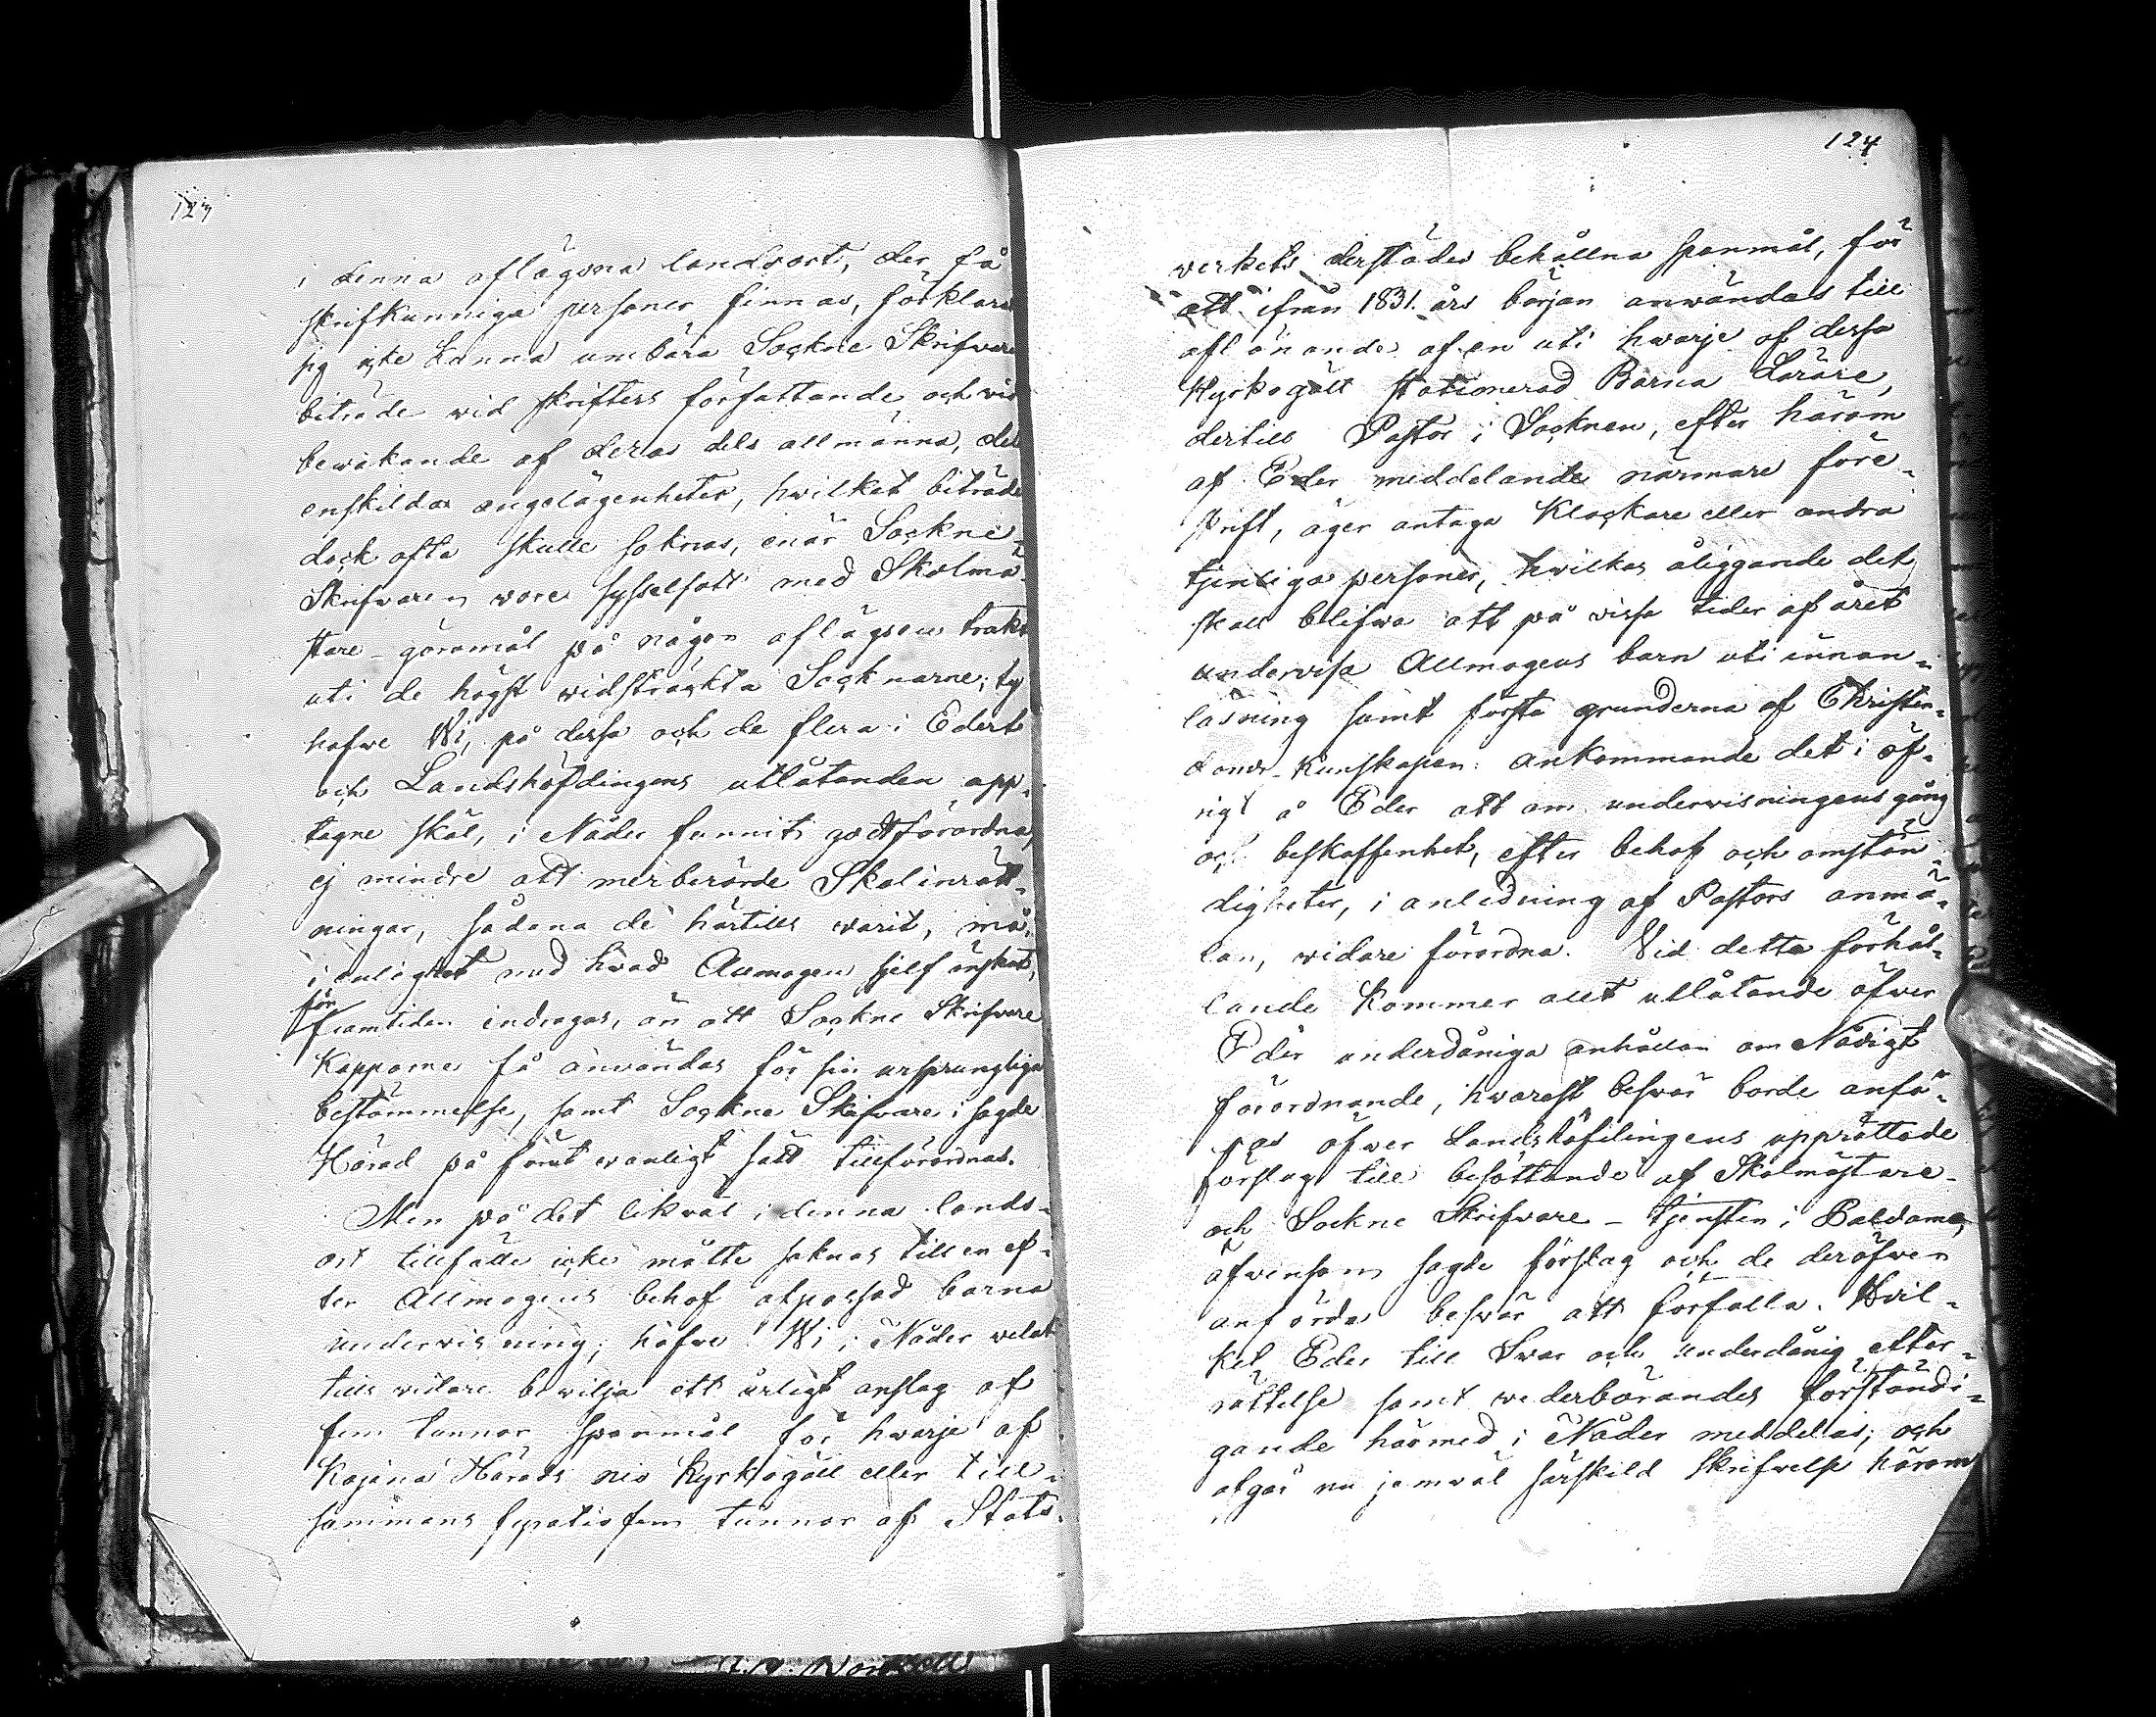 123
i denna aflägsna landsort, der få
skrifkunniga personer finnas, förklara
sig icke kunna umbära Sockne Skrifvare
biträde vid skrifters författande och vid
bewakande af deras dels allmänna, dels
enskilda angelägenheter, hwilket biträde
dock ofta skulle saknas, enär Sockne-
Skrifvaren vore sysselsatt med Skolmä-
stare-göromål på någon aflägsen trakt
uti de högst vidsträckta Socknarne; ty
hafve Wi, på dessa och de flera i Edert
och Landshöfdingens utlåtanden upp-
tagne skäl, i Nåder funnit godt förordna,
ej mindre att merberörde Skolinrätt-
ningar, sådana de härtills varit, må,
i enlighet med hvad Allmogen sjelf önskat,
för
framtiden indragas, än att Sockne Skrifvare
Kapporne få användas för sin ursprungliga
bestämmelse, samt Sockne Skrifvare i sagde
Härad på förut vanligt sätt tillförordnas.
Men på det likväl i denna lands-
ort tillfälle icke måtte saknas till en ef-
ter Allmogens behof afpassad barna
undervisning; hafve Wi i Nåder velat
tills vidare bevilja ett årligt anslag af
fem tunnor Spanmål för hvarje af
Kajana Härads nio Kyrkogäll eller till-
sammans fyratiofem tunnor af Stats-
124
verkets derstädes behållna spanmål, för
att ifrån 1831. års början användas till
aflönande af en uti hwarje af dessa
Kyrkogäll stationerad Barna Lärare,
dertill Pastor i Socknen, efter härom
af Eder meddelande närmare före-
skrift, äger antaga Klockare eller andra
tjenliga personer, hvilkas åliggande det
skall blifwa att på vissa tider af året
undervisa Allmogens barn uti innan-
läsning samt första grunderna af Christen-
doms-Kunskapen: ankommande det i öf-
rigt å Eder att om undervisningens gång
och beskaffenhet, efter behof och omstän-
digheter, i anledning af Pastors anmä-
lan, vidare förordna. Vid detta förhål-
lande kommer allt utlåtande öfver
Eder underdåniga anhållan om Nådigt
förordnande, hvarest besvär borde anfö-
ras öfver Landshöfdingens upprättade
förslag till besättande af Skolmästare-
och Sockne Skrifvare-tjensten i Paldamo,
äfvensom sagde förslag och de deröfver
anförda besvär att förfalla. Hvil-
ket Eder till Svar och underdånig efter-
rättelse samt vederbörandes förständi-
gande härmed i Nåder meddelas; och
afgår nu jemväl särskild Skrifvelse härom